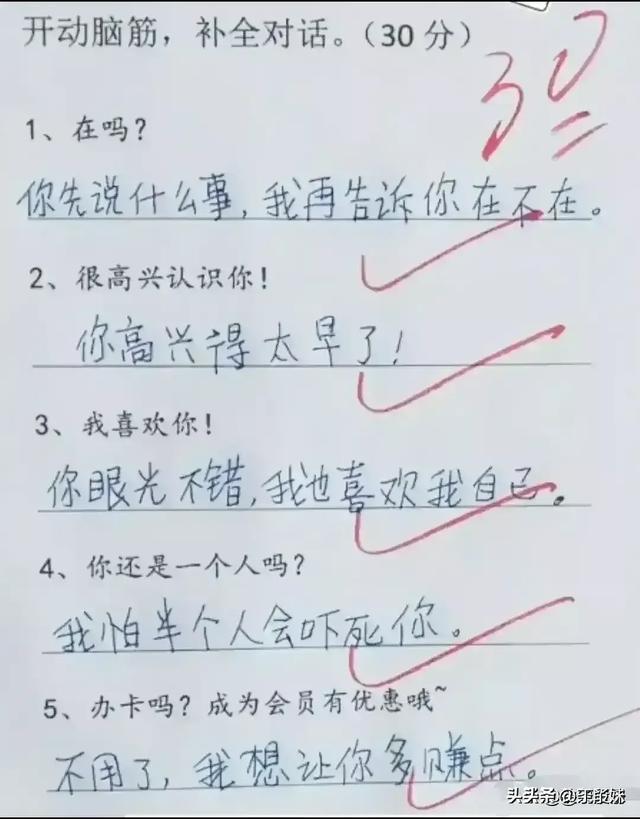 开动脑筋，补全对话。（30 分）
30
1、在吗？
你先说什么事，我再告诉你在不在。
2、很高兴认识你！
你高兴得太早了！
3、我喜欢你！
你眼光不错，我也喜欢我自己。
4、你还是一个人吗？
我怕半个人会吓死你。
5、办卡吗？成为会员有优惠哦~
不用了，我想让你多赚点。